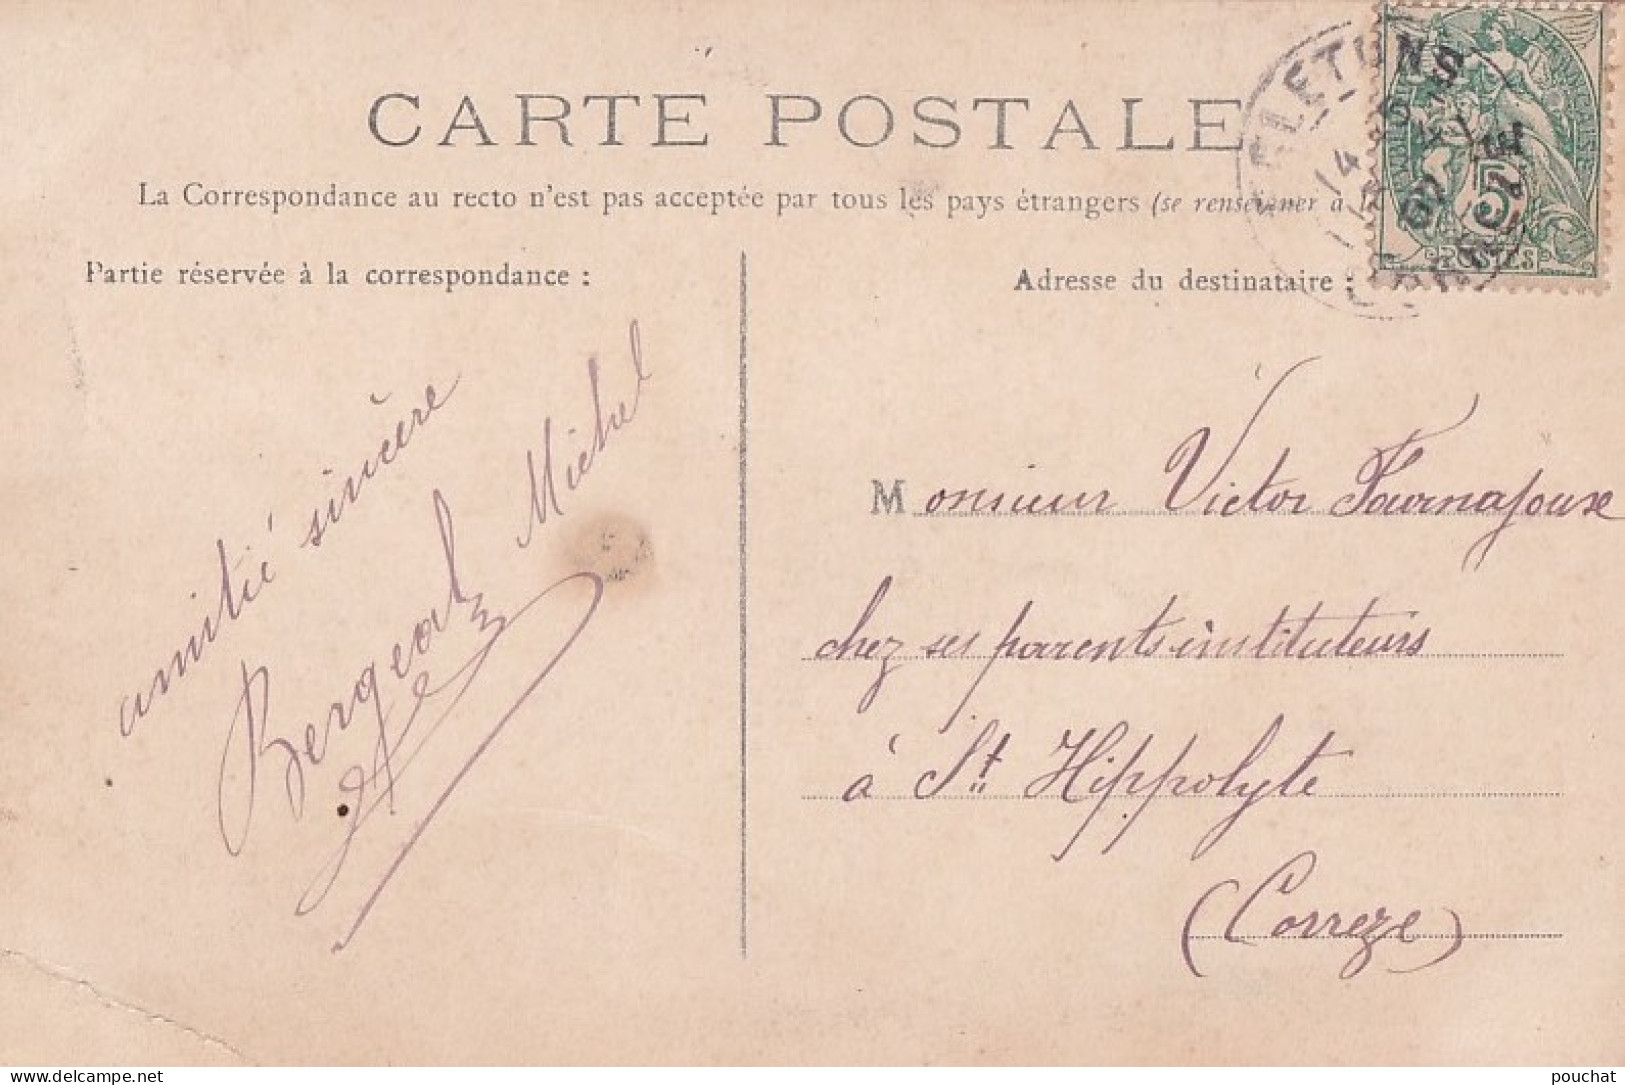 CARTE POSTALE
La Correspondance au recto n'est pas acceptée par tous les pays étrangers (se renseigner à l
Partie réservée à la correspondance :
amitié sincère
Bergeal Michel
Adresse du destinataire :
Monsieur Victor Fournajoux
chez ses parents instituteurs
à St Hippolyte
(Correze)
EGLETONS
CORREZE
5
POSTES
pouchat